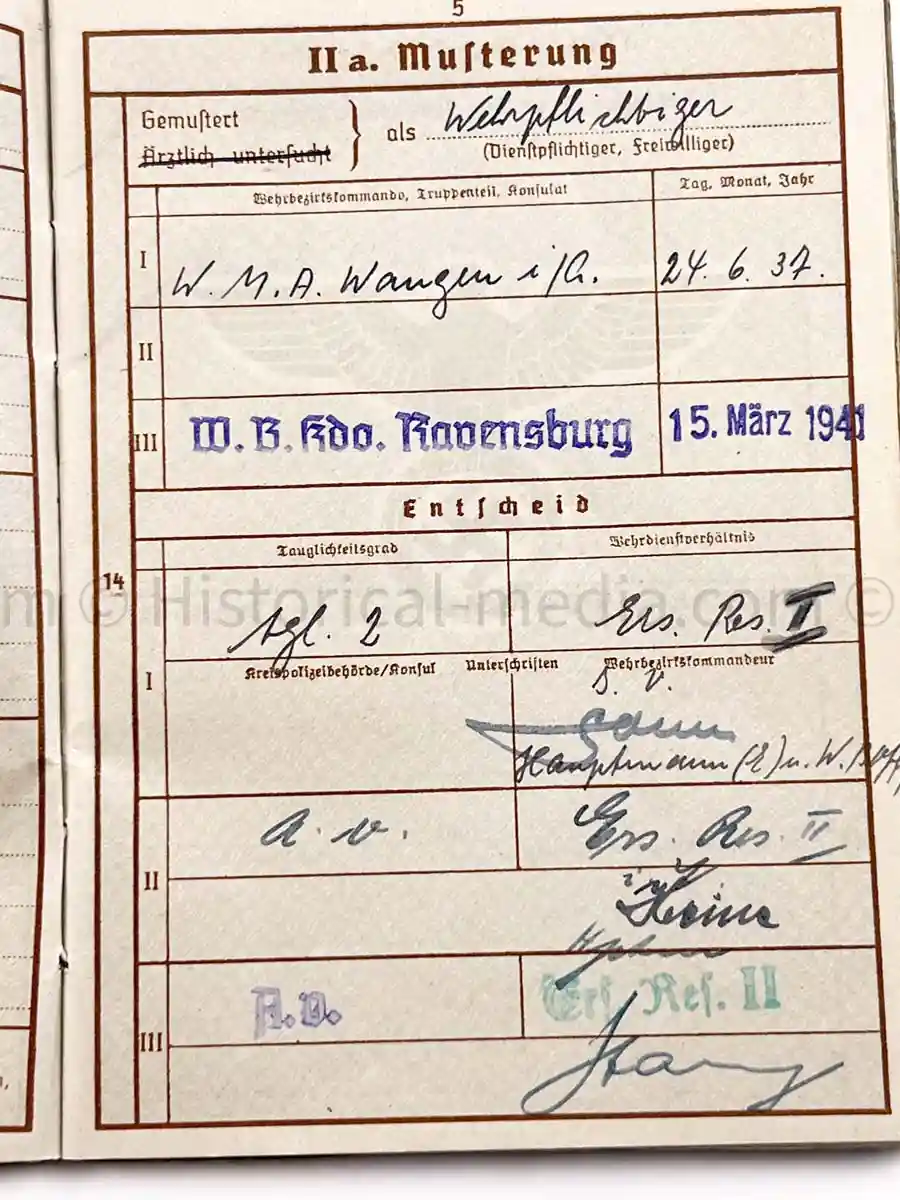 5
II a. Musterung
Gemustert
Ärztlich untersucht
als Wehrpflichtiger
(Dienstpflichtiger, Freiwilliger)
Wehrbezirkskommando, Truppenteil, Konsulat
Tag, Monat, Jahr
I
W. M. A. Wangen i/A.
24. 6. 37.
II
III
W. B. Kdo. Ravensburg
15. März 1941
Entscheid
14
Tauglichkeitsgrad
Wehrdienstverhältnis
© Historical-media.com ©
I
tgl. 2
Ers. Res. I
Kreispolizeibehörde/Konsul
Unterschriften
Wehrbezirkskommandeur
Hauptmann (E) u. W.
II
A. v.
Ers. Res. II
III
A.v.
Ers. Res. II